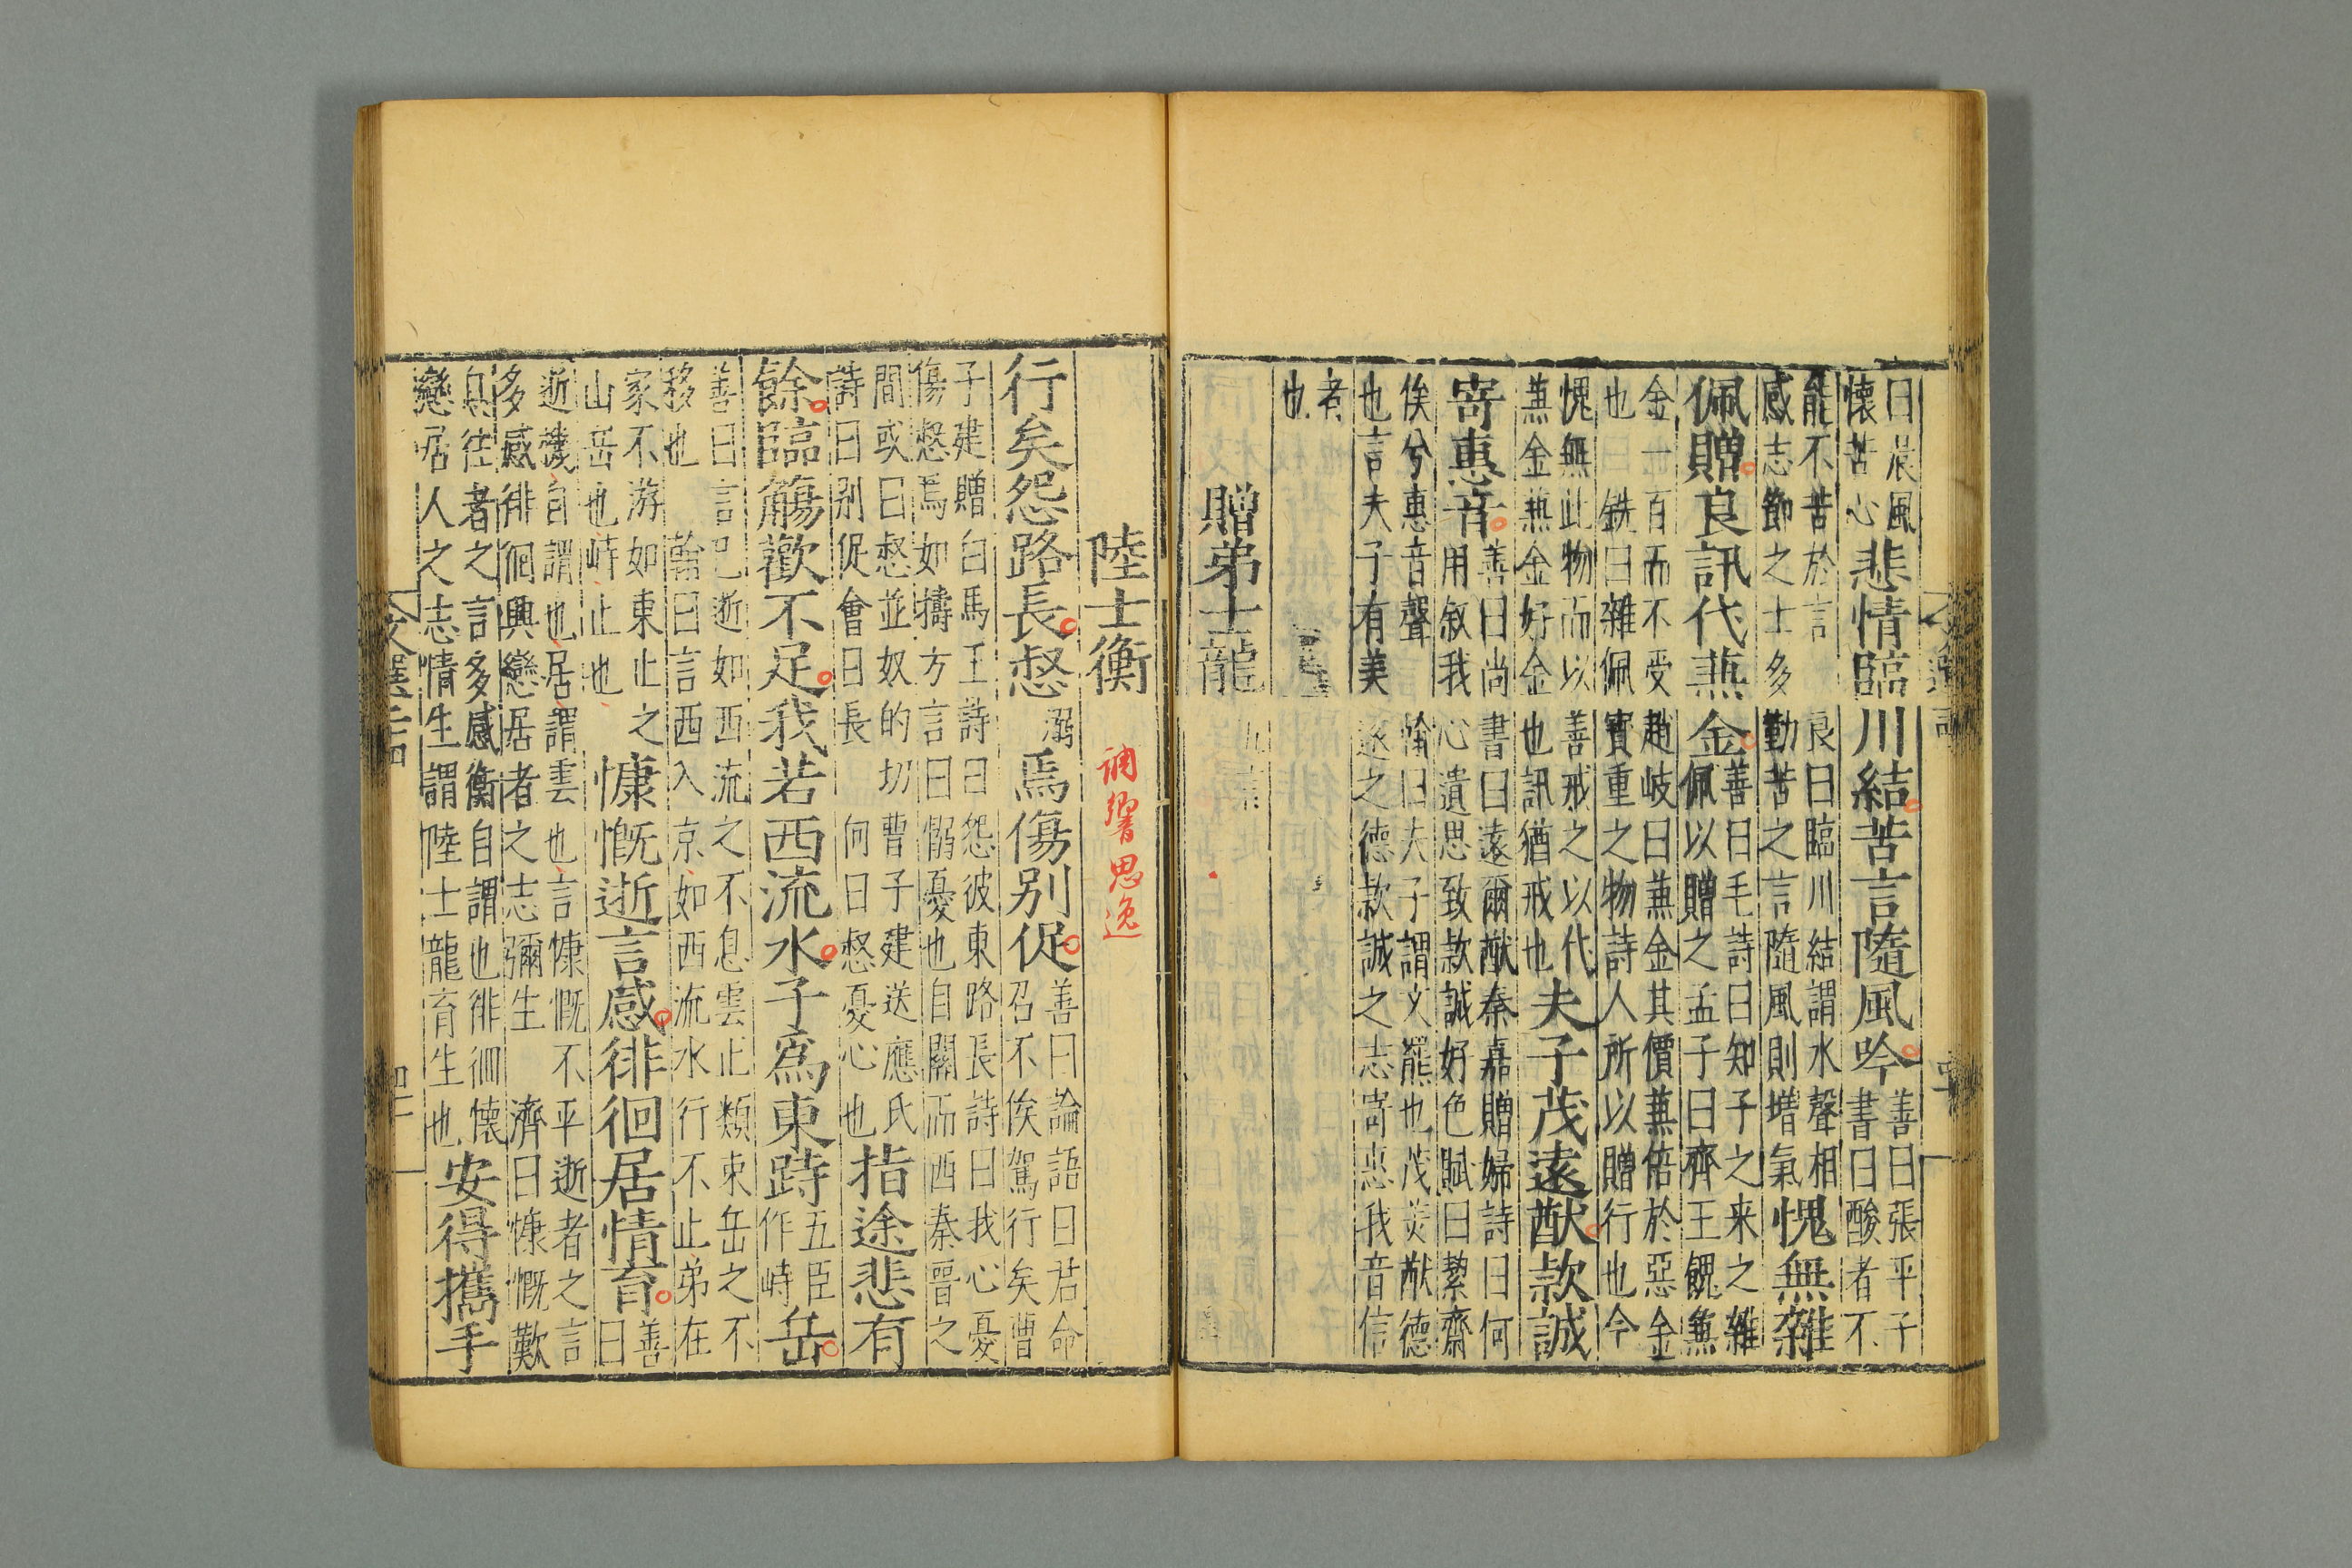 曰晨風
懷苦心
悲情臨川結苦言隨風吟
善曰張平子
書曰酸者不
能不苦於言　良曰臨川結謂水聲相
感志節之士多勤苦之言隨風則増氣
愧無雜
佩贈良訊代兼金
善曰毛詩曰知子之来之雜
佩以贈之孟子曰齊王餽兼
金一百而不受趙岐曰兼金其價兼倍於惡金
也　銑曰雜佩寶重之物詩人所以贈行也今
愧無此物而以善戒之以代
兼金兼金好金也訊猶戒也
夫子茂遠猷款誠
寄惠音
善曰尚書曰遠爾猷秦嘉贈婦詩曰何
用敘我心遺思致款誠好色賦曰絜齋
俟兮惠音聲　翰曰夫子謂文羆也茂美猷德
也言夫子有美遠之德款誠之志寄惠我音信
者
也
贈弟士龍　五言
陸士衡
調響思逸
行矣怨路長惄
溺
焉傷别促
善曰論語曰君命
召不俟駕行矣曹
子建贈白馬王詩曰怨彼東路長詩曰我心憂
傷惄焉如擣方言曰惄憂也自關而西秦晉之
間或曰惄並奴的切　曹子建送應氏
詩曰别促會日長　何曰惄憂心也
指途悲有
餘臨觴歡不足我若西流水子爲東跱
五臣
作峙
岳
善曰言已逝如西流之不息雲止類東岳之不
移也　翰曰言西入京如西流水行不止弟在
家不游如東止之
山岳也峙止也
慷慨逝言感徘徊居情育
善
曰
逝機自謂也居謂雲也言慷慨不平逝者之言
多感徘徊興戀居者之志彌生　濟曰慷慨歎
往者之言多感衡自謂也徘徊懷
戀居人之志情生謂陸士龍育生也
安得攜手